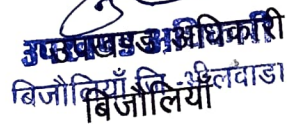 उपखण्ड अधिकारी
बिजौलियाँ जि. भीलवाडा
बिजौलियाँ